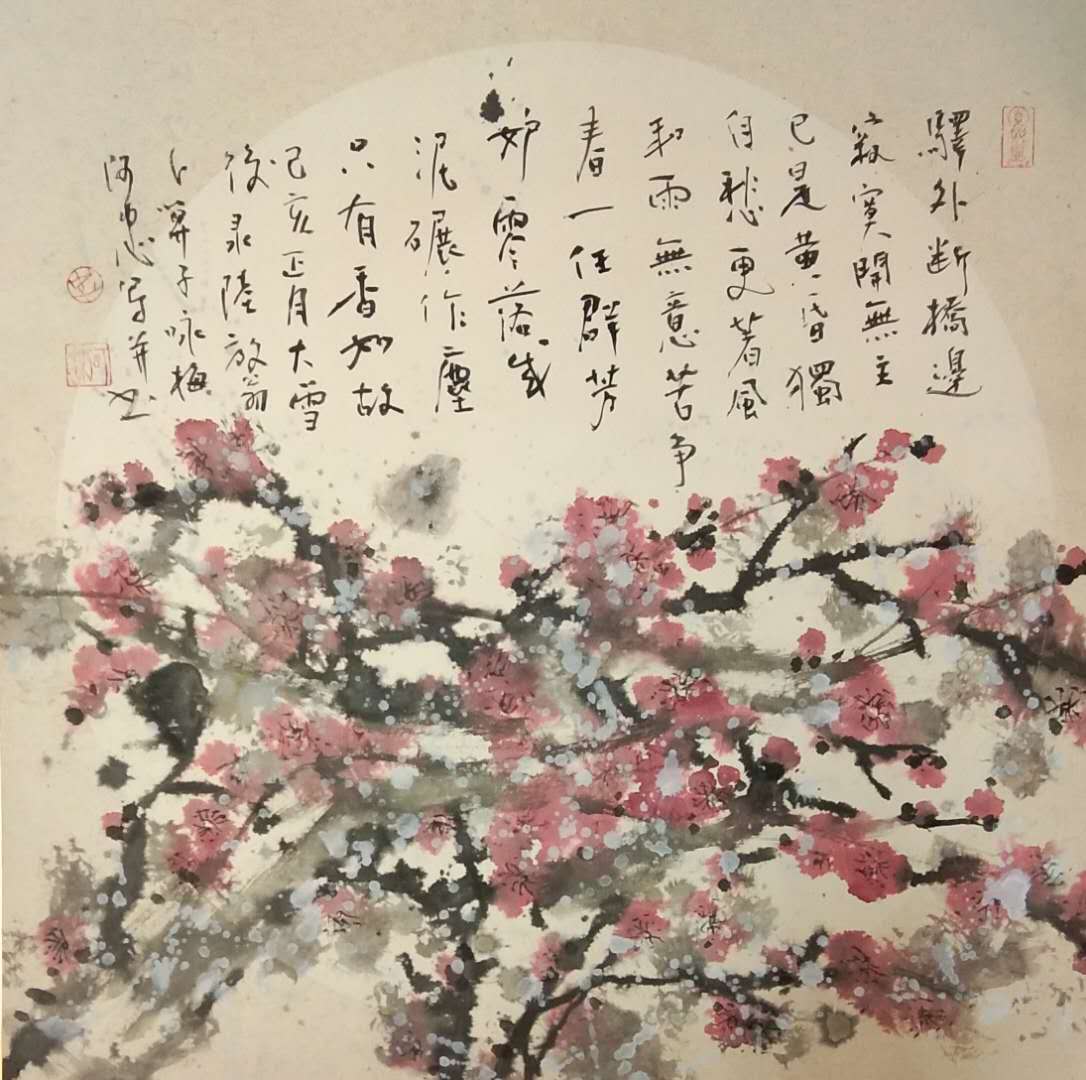 驛外斷橋邊
寂寞開無主
已是黃昏獨
自愁更著風
和雨無意苦争
春一任群芳
妒零落成
泥碾作塵
只有香如故
己亥正月大雪
後录陸放翁
卜算子咏梅
阿忠写并书